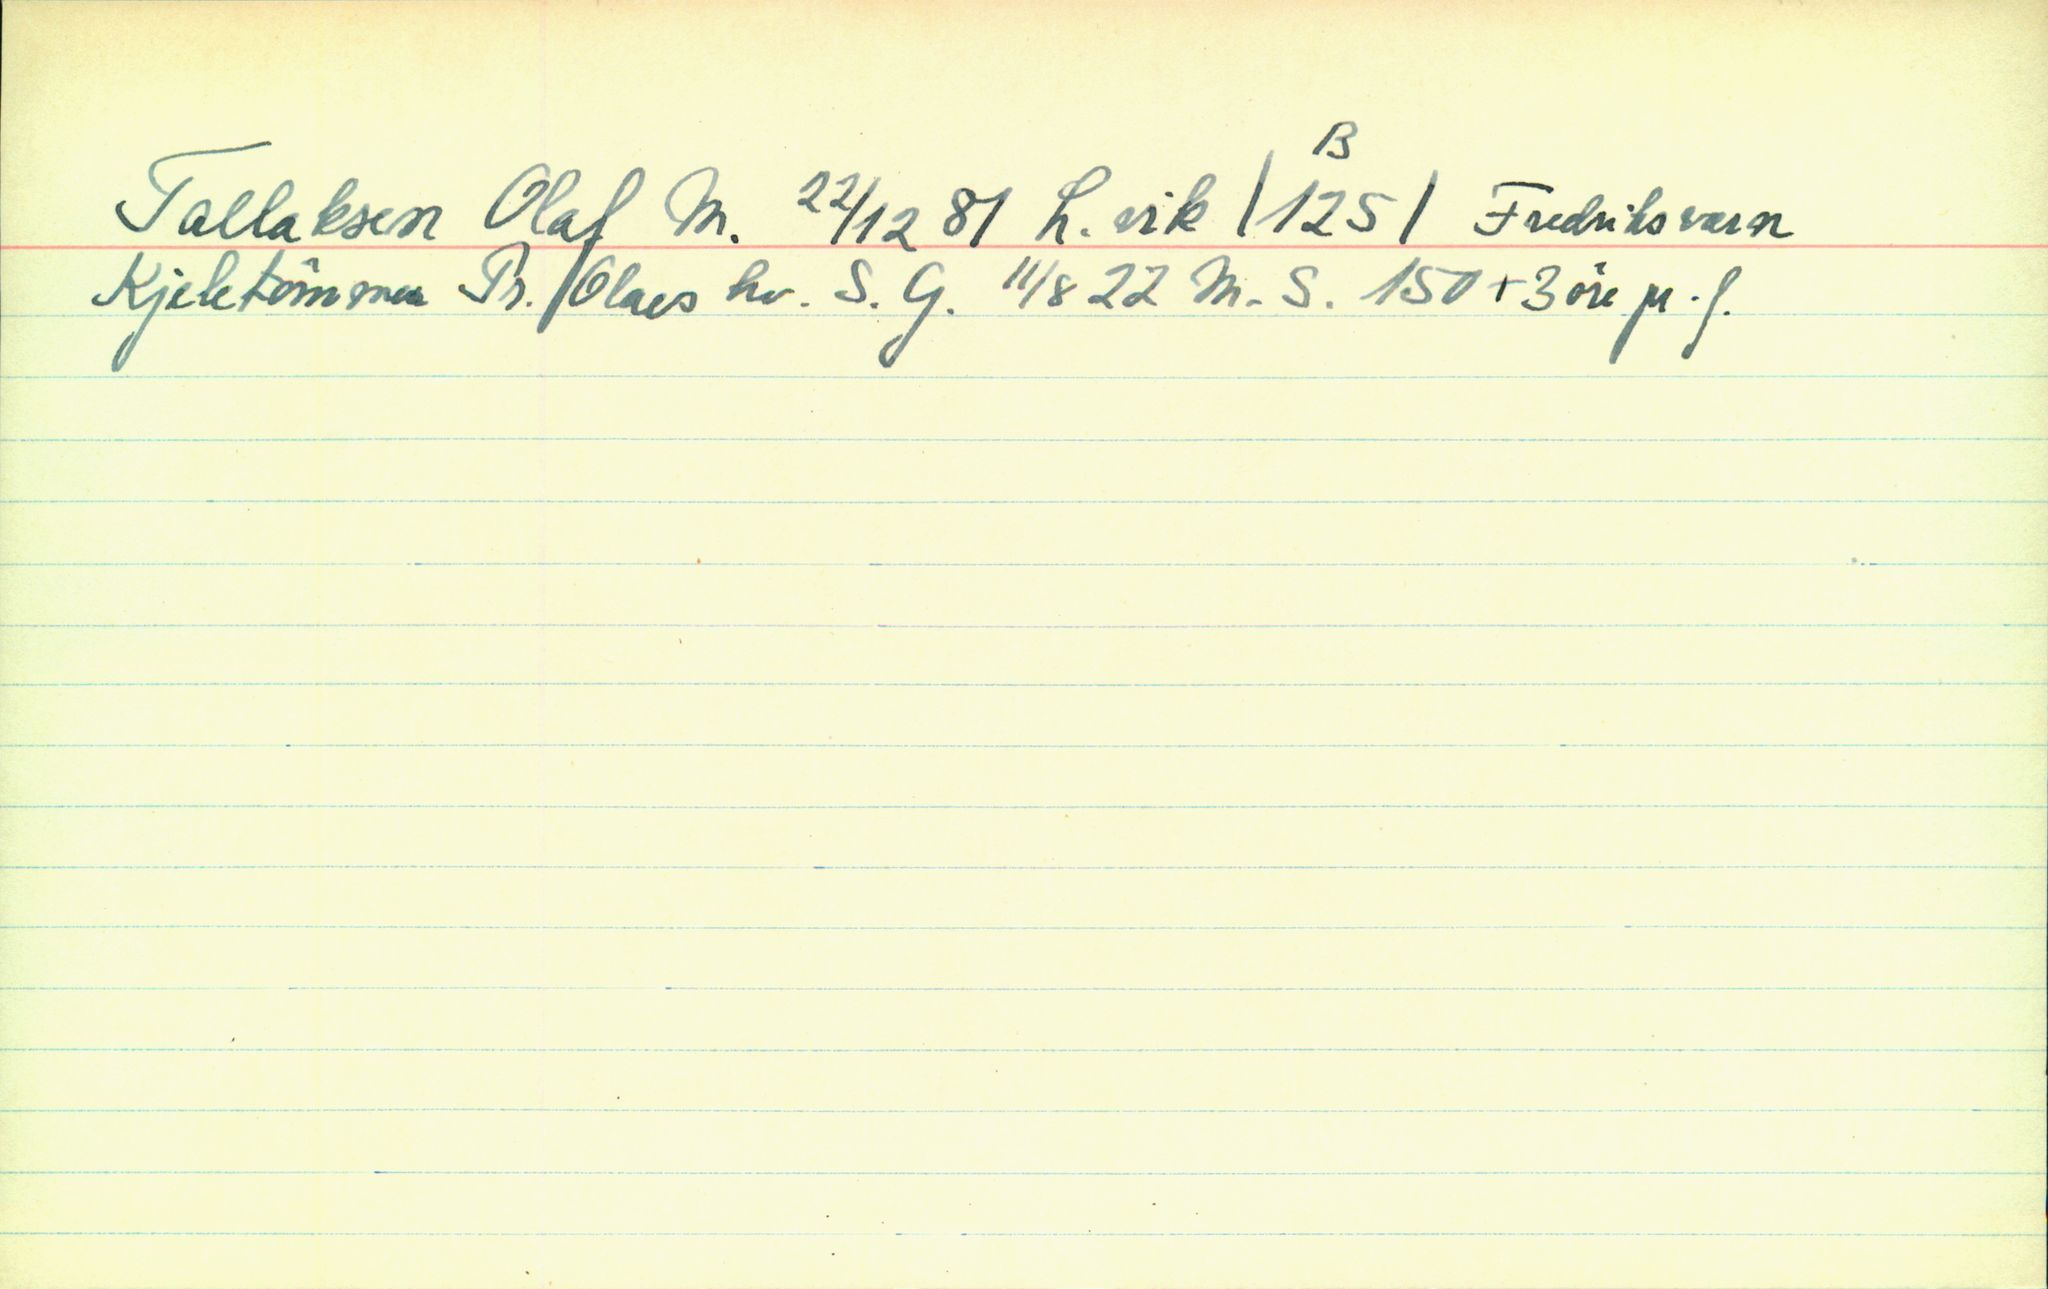 B
Tallaksen Olaf M. 22/12 81 L.vik |125| Fredriksvern
Kjeletömmer Pr. Olavs hv. S. G. 11/8 22 M. S. 150 + 3 öre pr. f.